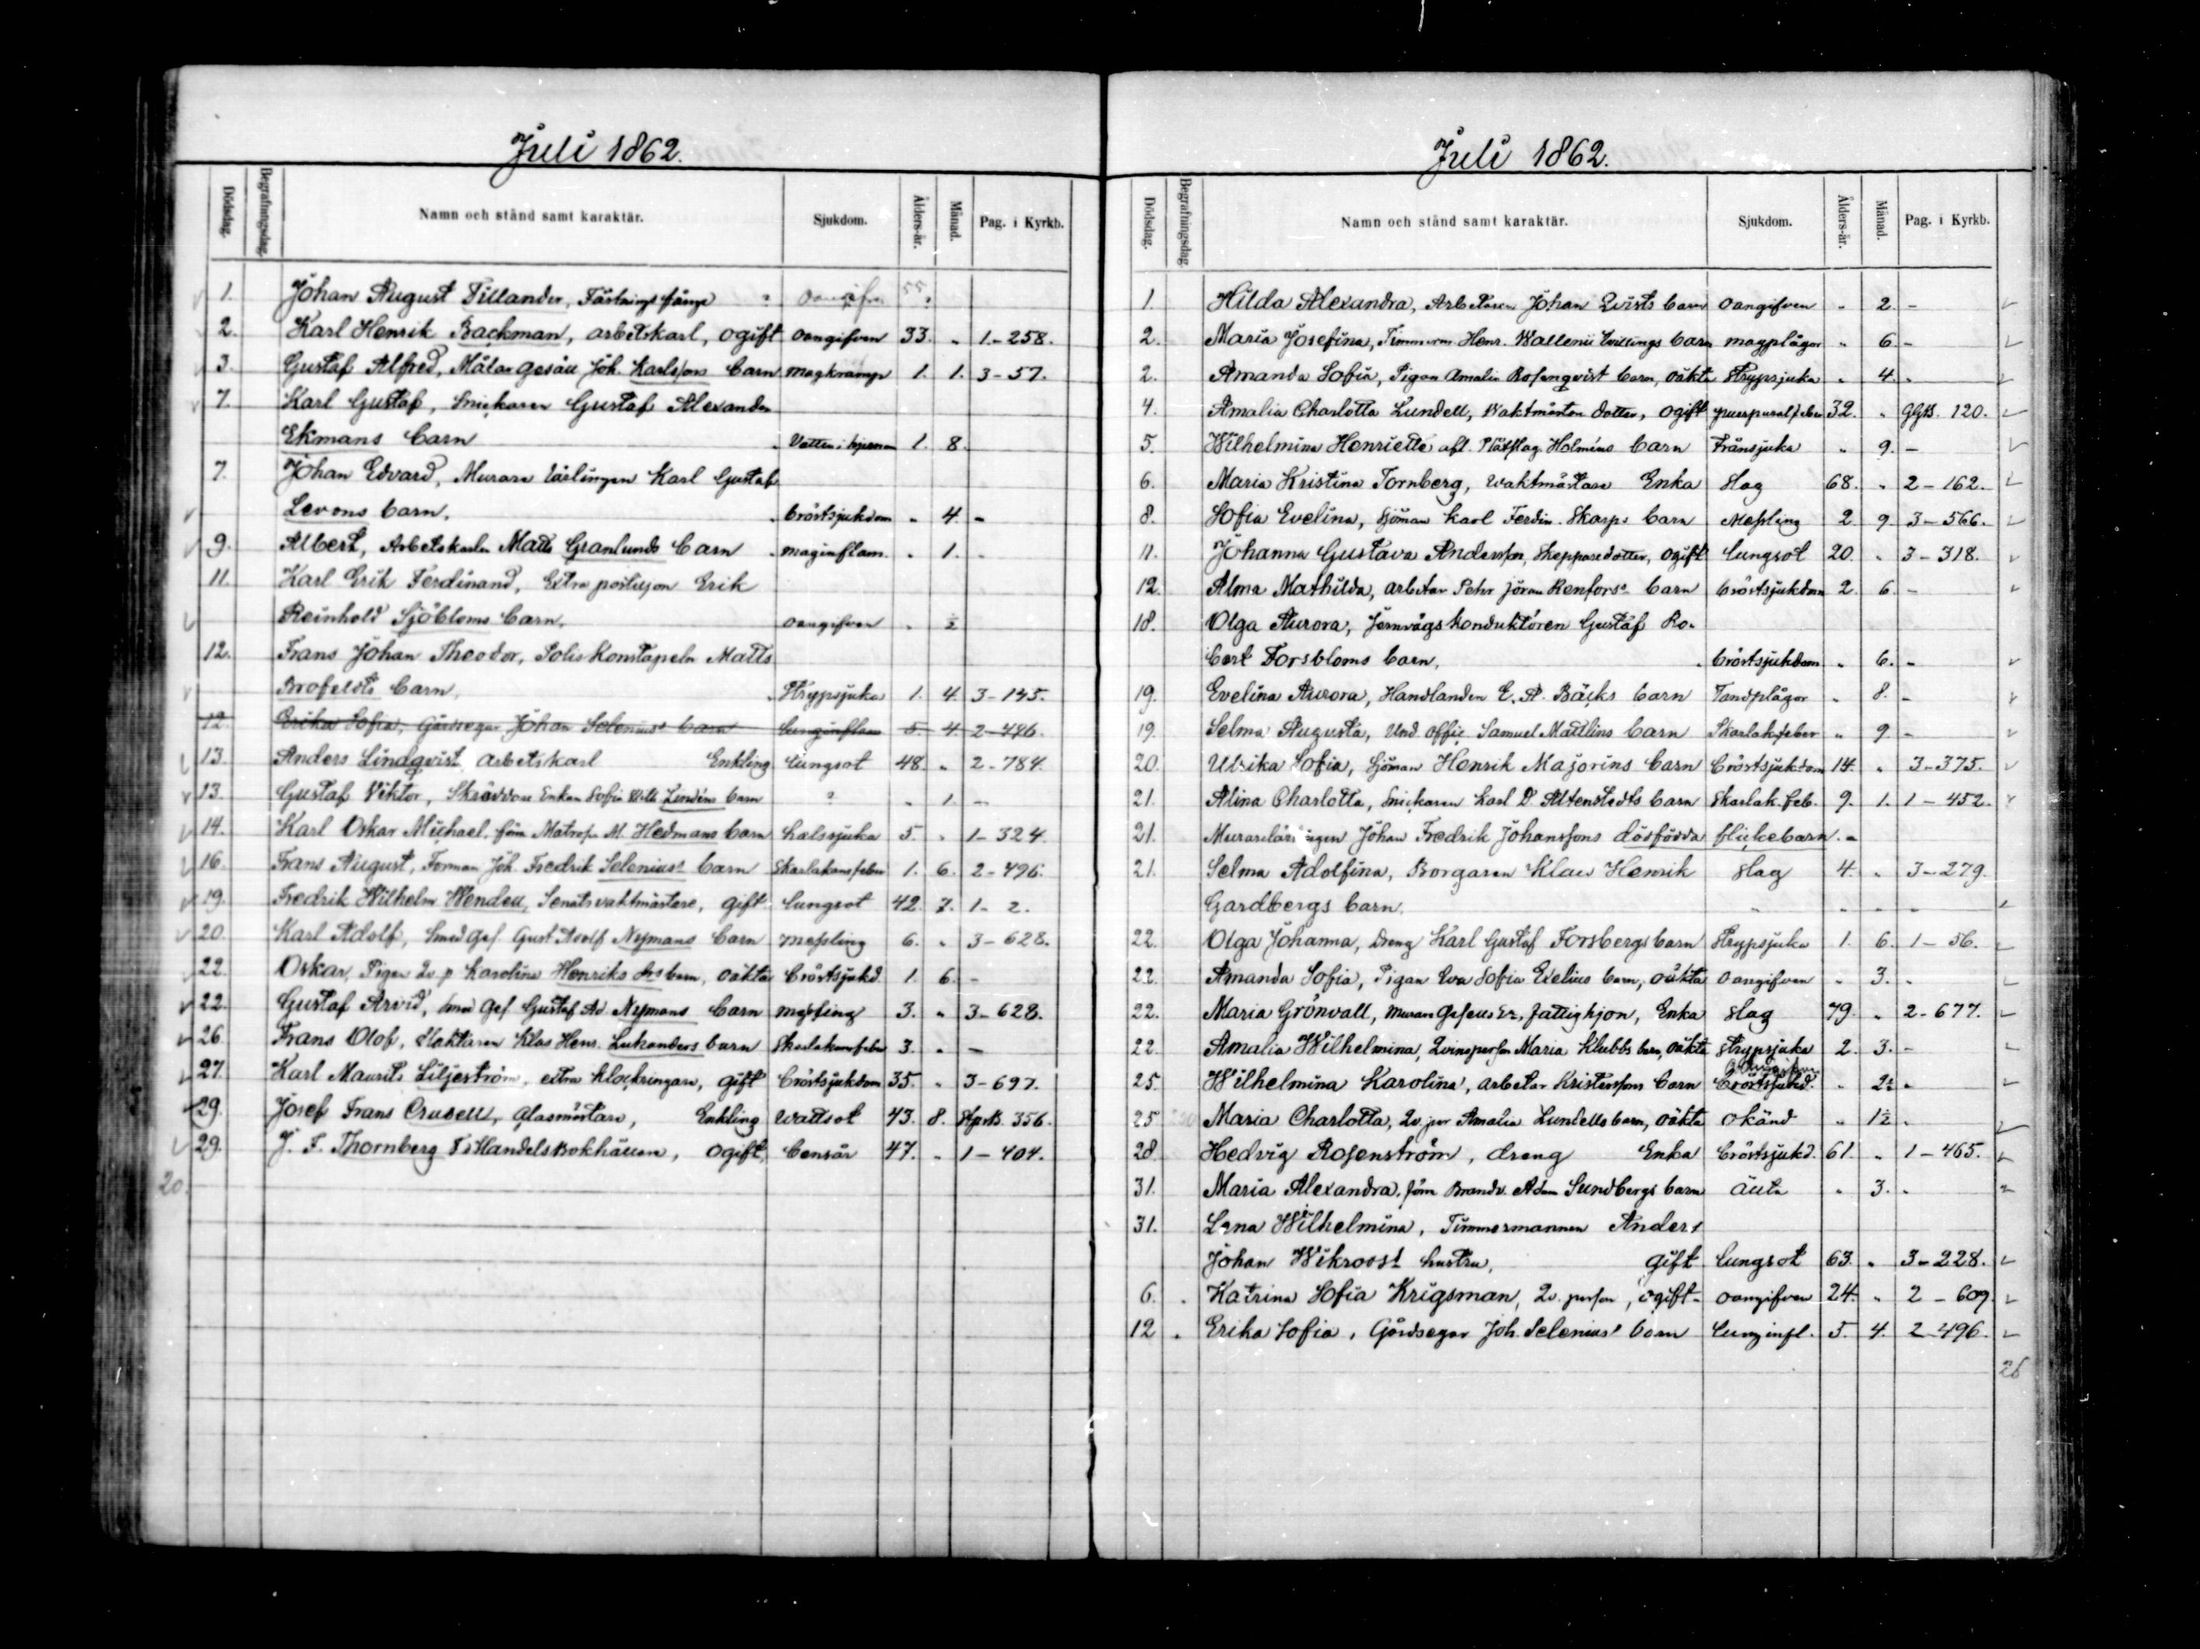 Juli 1862.
Dödsdag. Begrafningsdag. Namn och stånd samt karaktär. Sjukdom. Ålders-år. Månad. Pag. i Kyrkb.
1. Johan August Tillander, Fästnings fånge oangifven 55
2. Karl Henrik Backman, arbetskarl, ogift oangifven 33. " 1-258.
3. Gustaf Alfred, Målar gesäll Joh. Karlssons barn magkramp 1. 1. 3-57.
7. Karl Gustaf, Snickaren Gustaf Alexander
Ekmans barn Vatten i hjernan 1. 8.
7. Johan Edvard, Murare lärlingen Karl Gustaf
Levons barn. bröstsjukdom " 4. -
9. Albert, Arbetskarlen Matts Granlunds barn maginflam. " 1. -
11. Karl Erik Ferdinand, Extra postiljon Erik
Reinhold Sjöbloms barn, oangifven " ½
12. Frans Johan Theodor, Polis Konstapeln Matts
Brofeldts barn, Strypsjuka 1. 4. 3-145.
12. Erika Sofia, Gårdsegar Johan Selenius' barn lunginflam 5. 4 2-496.
13. Anders Lindqvist arbetskarl Enkling lungsot 48. " 2-784.
13. Gustaf Viktor, Skräddare Enkan Sofia Lindéns barn ? " 1. -
14. Karl Oskar Michael, förn Matros M. Hedmans barn halssjuka 5. " 1-324.
16. Frans August, Forman Joh. Fredrik Selenius' barn Skarlakansfeber 1. 6. 2-496.
19. Fredrik Wilhelm Wendell, Senatsvaktmästare, gift lungsot 42. 7. 1-2.
20. Karl Adolf, Smed Ges. Gust Adolf Nymans barn messling 6. " 3-628.
22. Oskar, Pigan Qv. p Karolina Henriks dr barn, oäkta bröstsjukd. 1. 6. -
22. Gustaf Arvid, Smed Ges Gustaf Ad. Nymans barn messling 3. " 3-628.
26. Frans Olof, Klas Henr. Luhanders barn Skarlakansfeber 3. " -
27. Karl Maurits Liljeström, extra klockringare, gift bröstsjukdom 35. " 3-697.
29. Josef Frans Crusell, Glasmästare, Enkling wattsot 43. 8. 356.
29. J. F. Thornberg Handelsbokhållare, ogift, 47. " 1-404.
20.
Juli 1862.
Dödsdag. Begrafningsdag Namn och stånd samt karaktär. Sjukdom. Ålders-år. Månad. Pag. i Kyrkb.
1. Hilda Alexandra, Arbetaren Johan Qvists barn oangifven " 2. -
2. Maria Josefina, Timmerm Henr. Wallenii tvillings barn magplågor " 6. -
2. Amanda Sofia, Pigan Amalia Rosenqvist barn, oäkta Strypsjuka " 4. "
4. Amalia Charlotta Lundell, Waktmästar dotter, ogift puerpuralfeber 32. " GGB. 120.
5. Wilhelmina Henriette afl. Plåtslag. Holméns barn Trånsjuka " 9. -
6. Maria Kristina Tornberg, Waktmästare Enka slag 68. " 2-162.
8. Sofia Evelina, Sjöman Karl Ferdin. Skarps barn Messling 2 9. 3-566.
11. Johanna Gustava Andersson, Skeppare dotter, ogift lungsot 20. " 3-318.
12. Alma Mathilda, arbetar Petr Jöran Renfors' barn bröstsjukdom 2. 6. -
18. Olga Aurora, Jernvägs konduktören Gustaf Ro-
bert Forsbloms barn, bröstsjukdom " 6. -
19. Evelina Aurora, Handlanden E. A. Bäcks barn Tandplågor " 8. -
19. Selma Augusta, Und. offic Samuel Mattlins barn Skarlakfeber " 9 -
20. Ulrika Sofia, Sjöman Henrik Majorins barn bröstsjukdom 14. " 3-375.
21. Alina Charlotta, Snickaren Karl D. Altenstedts barn Skarlak. feb. 9. 1. 1-452.
21. Murarelärlingen Johan Fredrik Johanssons dödfödda flickebarn. -
21. Selma Adolfina, Borgaren Klas Henrik slag 4. " 3-279
Gardbergs barn. " " " "
22. Olga Johanna, Dreng Karl Gustaf Forsbergs barn Strypsjuka 1. 6. 1-56.
22. Amanda Sofia, Pigan Eva Sofia Evelius barn, oäkta oangifven " 3. "
22. Maria Grönvall, Murare Gesälls Er, fattighjon, Enka slag 79. " 2-677.
22. Amalia Wilhelmina, Qvinsperson Maria Klubbs barn, oäkta Strypsjuka 2. 3. -
25. Wilhelmina Karolina, arbetar Kristerssons barn bröstsjukd. " 2½ "
25 Maria Charlotta, Qv. per Amalia Lundells barn, oäkta okänd " 1½ "
28. Hedvig Rosenström, dreng Enka bröstsjukd. 61. " 1-465.
31. Maria Alexandra, förn Brandv. Adam Sundbergs barn " 3. "
31. Lena Wilhelmina, Timmermannen Anders
Johan Wikroost hustru, gift lungsot 63. " 3-228.
6. Katrina Sofia Krigsman, Qv. person, ogift oangifven 24. " 2-609.
12 Erika Sofia, Gårdsegar Joh. Selenius' barn lunginfl. 5. 4. 2-496.
26